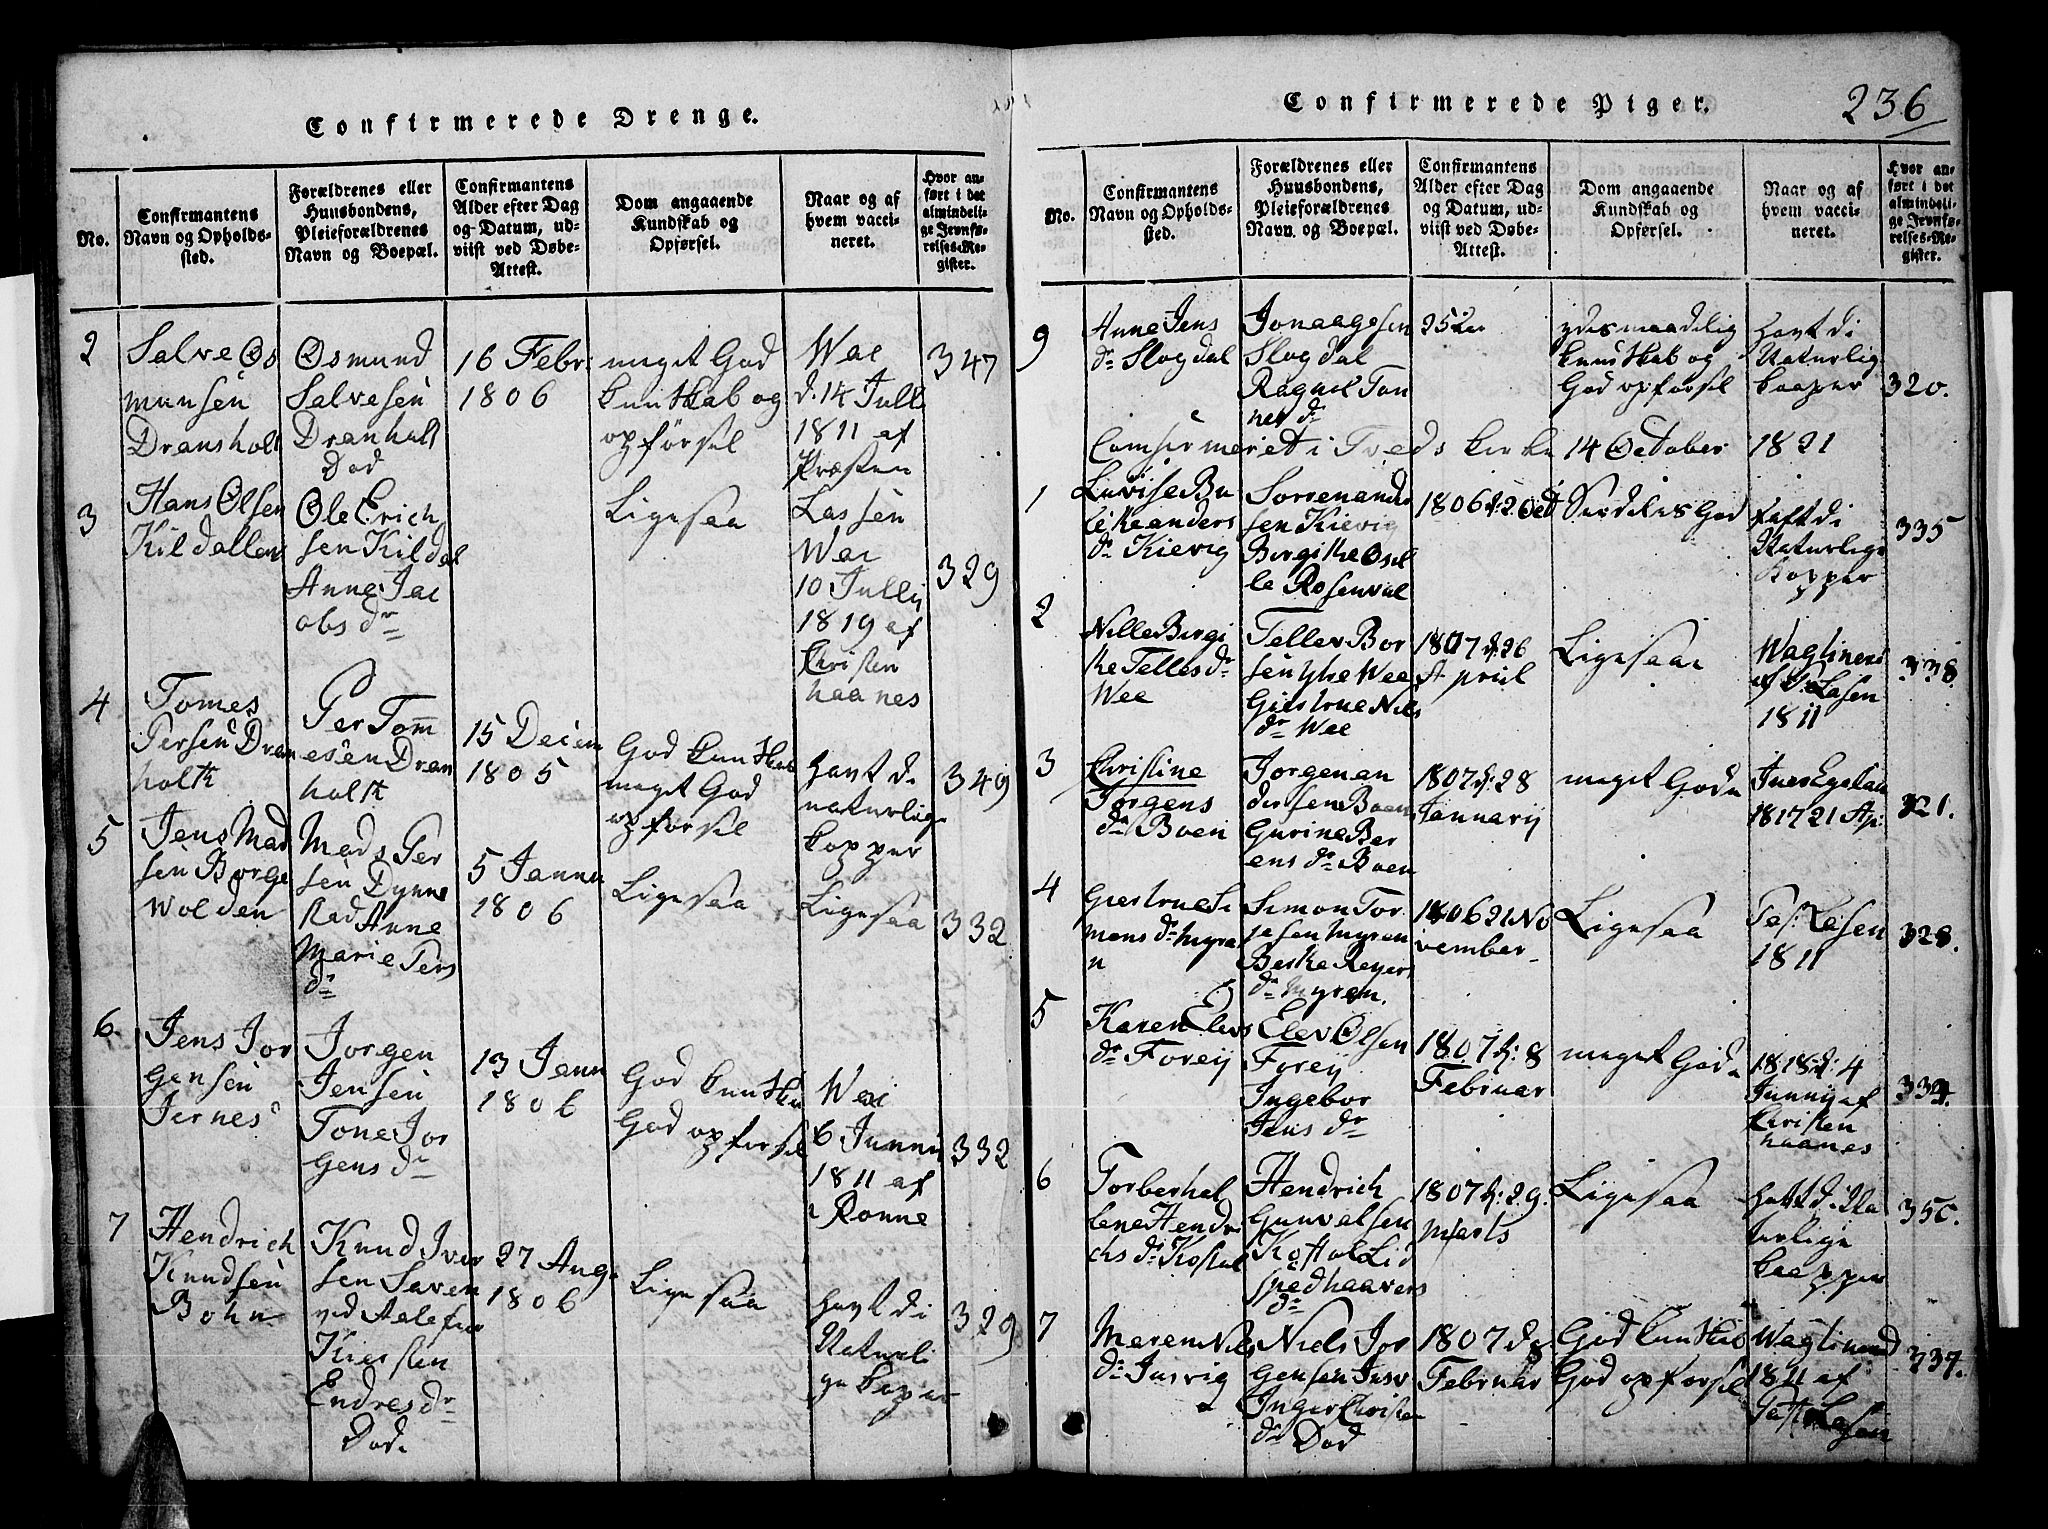 Confirmerede Drenge.
No.
Confirmantens
Navn og Opholds-
sted.
Forældrenes eller
Huusbondens,
Pleieforældrenes
Navn og Boepæl.
Confirmantens
Alder efter Dag
og Datum, ud-
viist ved Døbe-
Attest.
Dom angaaende
Kundskab og
Opførsel.
Naar og af
hvem vacci-
neret.
Hvor an-
ført i det
almindeli-
ge Jevnfø-
relses-Re-
gister.
2
Salve Os
munsen
Dransholt
Osmund
Salvesen
Dranholt
Død
16 Febr
1806
meget God
kuntskab og
opførsel
Wac
d. 14 Julli
1811 af
Præsten
Lassen
347
3
Hans Olsen
Kildallen
Ole Erich
sen Kildal
Anne Jac
obs dr
Ligesaa
Wac
10 Jullij
1819 af
Christen
haanes
329
4
Tomes
Persen Dran
holth
Per Tomm
esen Dran
holth
15 Decem
1805
God kuntskab
meget God
opførsel
havt di
naturlige
kopper
349
5
Jens Mad
sen Borge
Wolden
Mads Per
sen Dynne
stad Anne
Marie Pers
dr
5 Jannu
1806
Ligesaa
Ligesaa
332
6
Jens Jor
gensen
Jernes
Jorgen
Jensen
Tone Jor
gens dr
13 Jann
1806
God kuntska
God opførsel
Wac
6 Junni
1811 af
Ronne
332
7
Hendrich
Knudsen
Bohn
Knud Iver
sen Saven
ved Aalefiær
Kiersten
Endres dr
Død
27 Aug
1806
Ligesaa
havt di
Naturli
ge koper
329
Confirmerede Piger.
236
No.
Confirmantens
Navn og Opholds-
sted.
Forældrenes eller
Huusbondens,
Pleieforældrenes
Navn og Boepæl.
Confirmantens
Alder efter Dag
og Datum, ud-
viist ved Døbe-
Attest.
Dom angaaende
Kundskab og
Opførsel.
Naar og af
hvem vacci-
neret.
Hvor an-
ført i det
almindeli-
ge Jevnfø-
relses-Re-
gister.
9
Anne Jens
dr Slogdal
Jon aagesen
Slogdal
Ragnil Ton
nes dr
kuntskab og
God opførsel
havt di
Naturlig
kaaper
320.
i Tveds kirke 14 October 1821
1
Lovise Bu
anders
dr Kievig
Sorren anders
sen Kievig
Birgithe
Rosenval
1806
God
haft di
Naturlige
Kopper
335
2
Nille Birgi
the Telles dr
Wee
Tellev Bor
Wee
Giertrue Nils
dr Wee
1807 d: 26
April
Ligesaa
af P. Lasen
1811
338.
3
Christine
Jorgens
dr Boen
Jorgen an
dersen Boen
Gurine Ber
ens dr Boen
1807 d: 28
Januarij
meget God
1817 21 Ap:
321.
4
Giertrue Si
mons dr Myre
n
Simon Tor
jesen Myren
Reyers
dr Myren
1806 21 No
vember
Ligesaa
Lasen
1811
328.
5
Karen Elevs
dr Foreij
Elev Olsen
Forey
Ingebor
Jens dr
1807 d: 8
Februar
meget God
1818 d: 4
Junny af
Christen
haanes
334.
6
Torber hel
lene Hendri
chs dr Kostøl
Hendrich
Gunvalsen
Kostøl
haavers
dr
1807 d: 29.
Marts
Ligesaa
haft di Na
turlige
kaapper
350.
7
Maren Nils
dr Jusvig
Niels Jor
gensen Jusv
Inger Christen
dr Død
1807 d 8
Februar
God kuntskab
God opførsel
1811 af
Past Lasen
337.